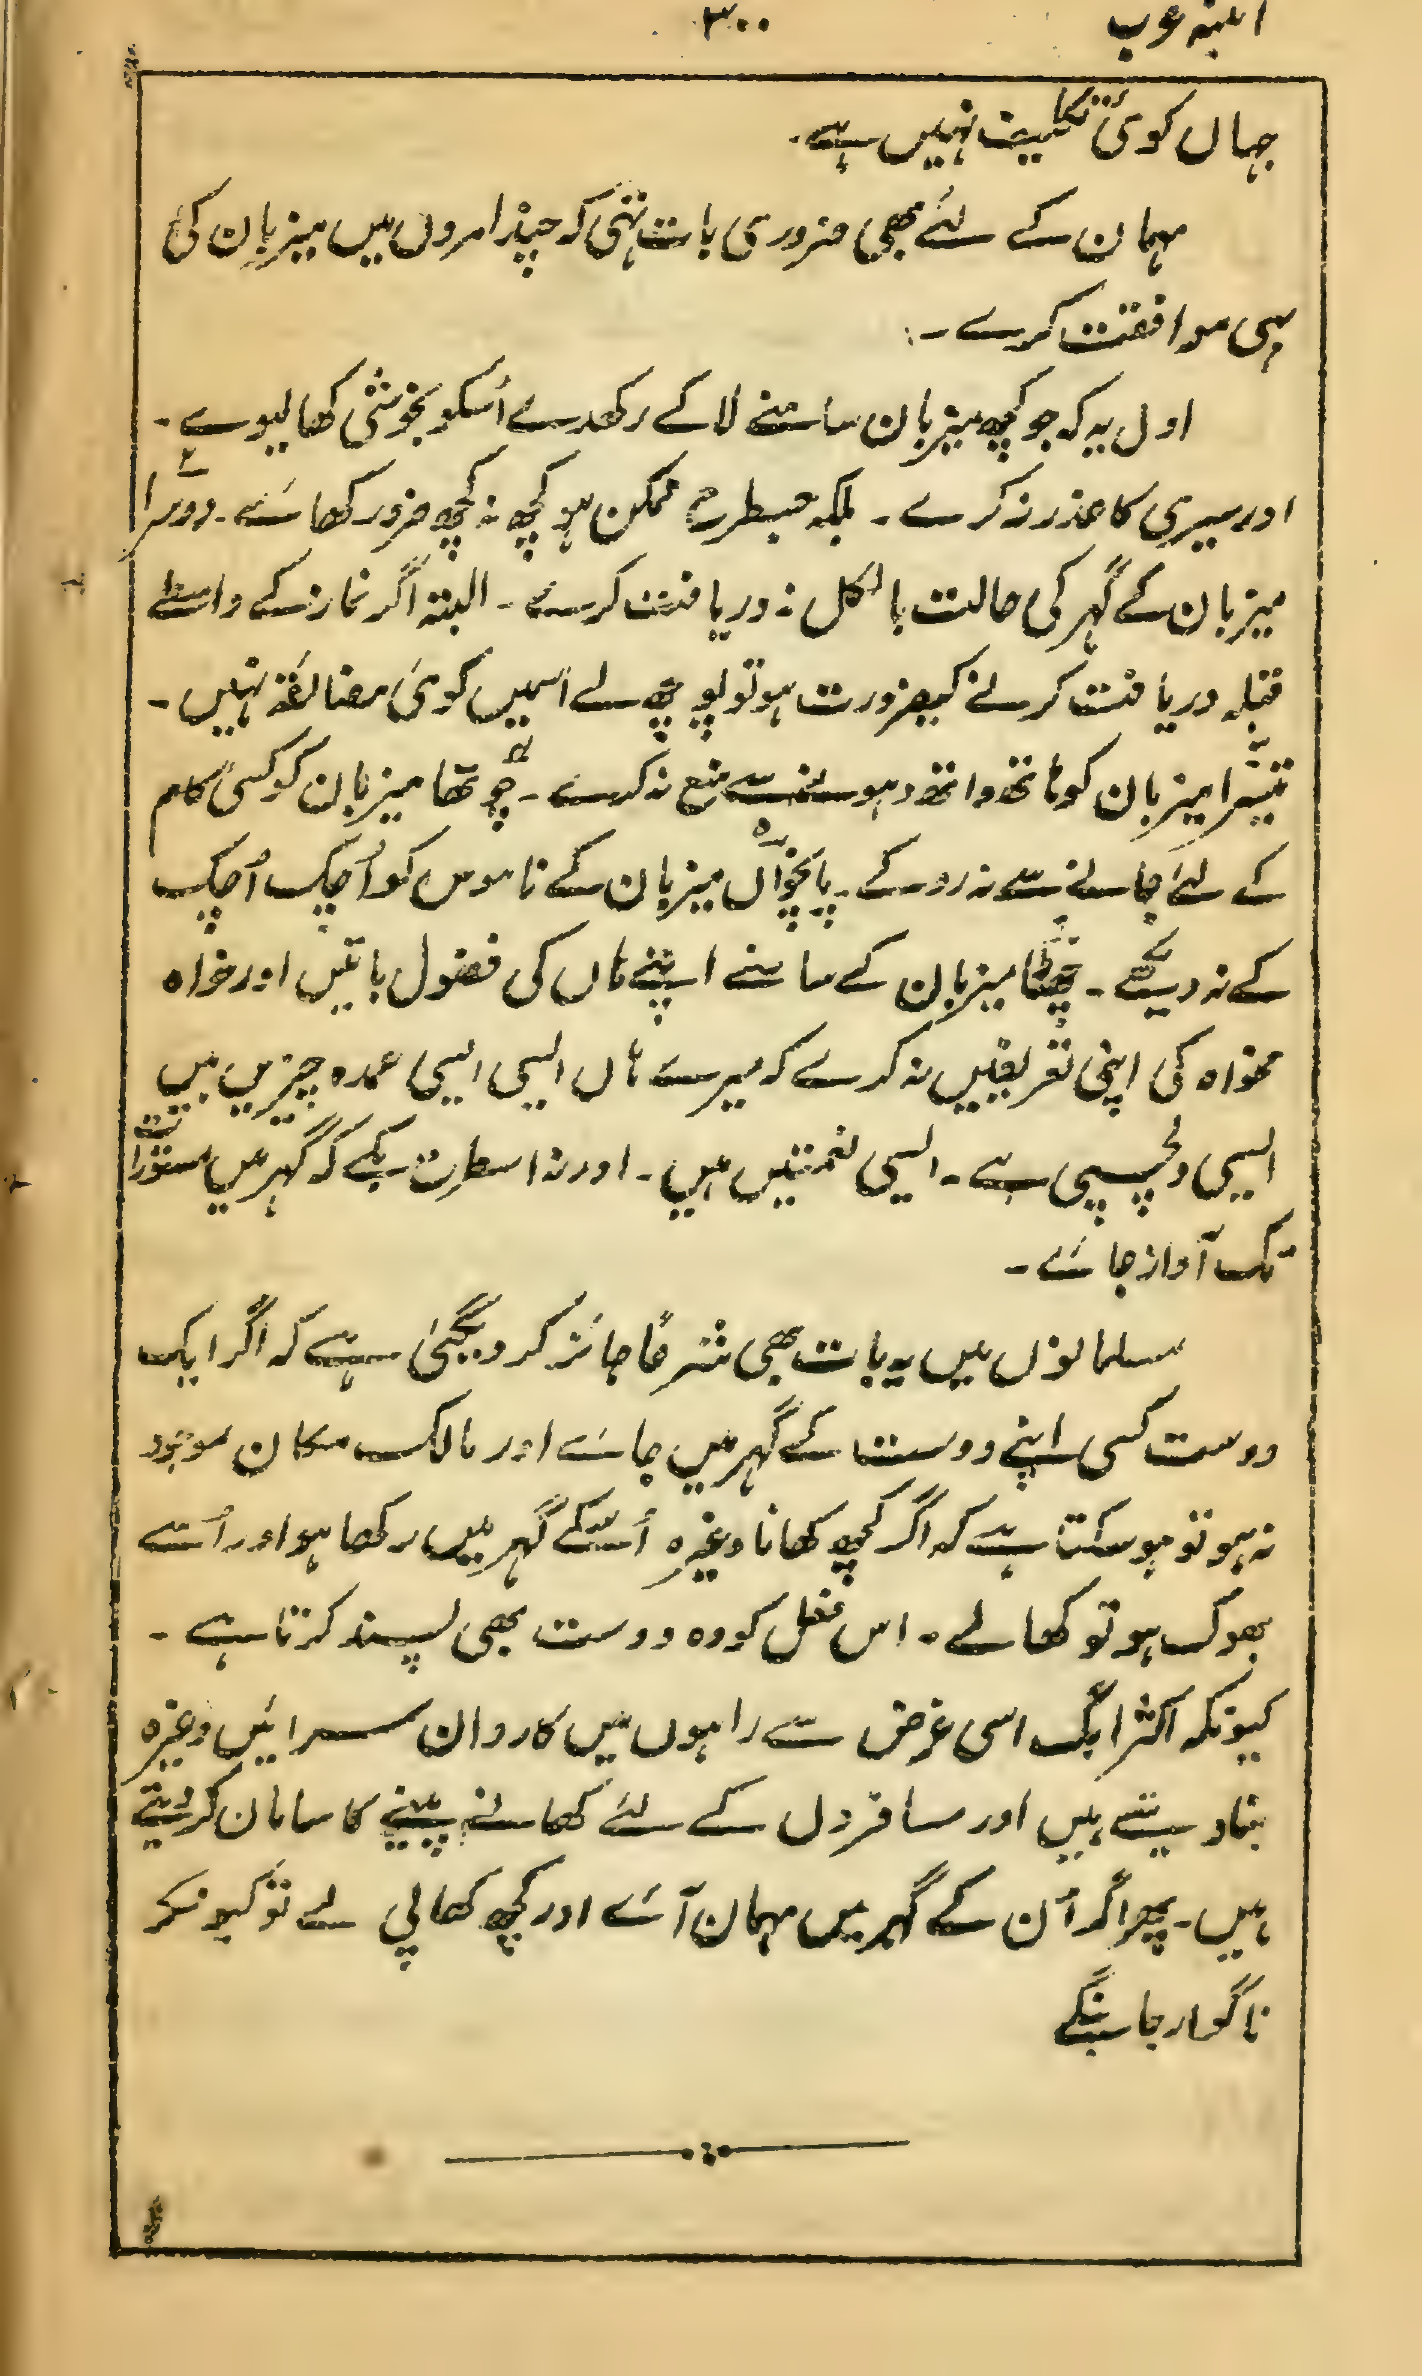 ۳۰۰
جہاں کوئی تکلیف نہیں ہے۔
مہمان کے لئے بھی ضروری بات تھی کہ چند امروں میں میزبان کی
ہی موافقت کرے۔:
اول یہ کہ جو کچھ میزبان سامنے لاکے رکھدے اُسکو بخوشی کھالیوے۔
اور سیری کا عذر نہ کرے۔ بلکہ جسطرح ممکن ہو کچھ نہ کچھ ضرور کھائے۔ دوسرا ۲
میزبان کے گہر کی حالت بالکل نہ دریافت کرے۔ البتہ اگر نماز کے واسطے
قبلہ دریافت کرنے کیضرورت ہو تو پوچھ لے اسمیں کوئی مضائقہ نہیں۔
تیسرا ۳ میزبان کو ہاتھ واتھ دہونے سے منع نہ کرے۔ چوتھا ۴ میزبان کو کسی کام
کے لئے جانے سے نہ روکے۔ پانچواں ۵ میزبان کے ناموس کو اُچک اُچک
کے نہ دیکھے۔ چھٹا میزبان کے سامنے اپنے ہاں کی فضول باتیں اور خواہ
مخواہ کی اپنی تعریفیں نہ کرے کہ میرے ہاں ایسی ایسی عمدہ چیزیں ہیں
ایسی دلچسپی ہے۔ ایسی نعمتیں ہیں۔ اور نہ اسطرح بکے کہ گہر میں مستورات
تک آواز جائے۔
مسلمانوں میں یہ بات بھی شرعًا جائز کر دیگئی ہے کہ اگر ایک
دوست کسی اپنے دوست کے گہر میں جائے اور مالک مکان موجود
نہ ہو تو ہو سکتا ہے کہ اگر کچھ کھانا وغیرہ اُسکے گہر میں رکھا ہو اور اُسے
بھوک ہو تو کھالے۔ اس فعل کو وہ دوست بھی پسند کرتا ہے۔
کیونکہ اکثر لوگ اسی غرض سے راہوں میں کارواں سرائیں وغیرہ
بنا دیتے ہیں اور مسافروں کے لئے کھانے پینے کا سامان کر دیتے
ہیں۔ پھر اگر اُن کے گہر میں مہمان آئے اور کچھ کھا پی لے تو کیونکر
ناگوار جانینگے